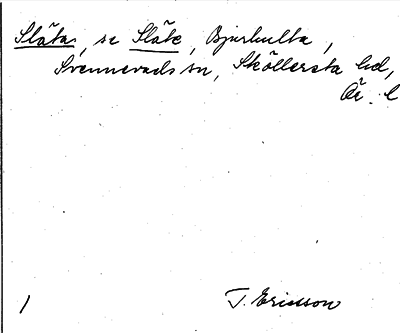 Släta, se Släte, Bjurhulta,
Svennevads sn, Sköllersta hd,
Ör. l
/ T. Ericsson